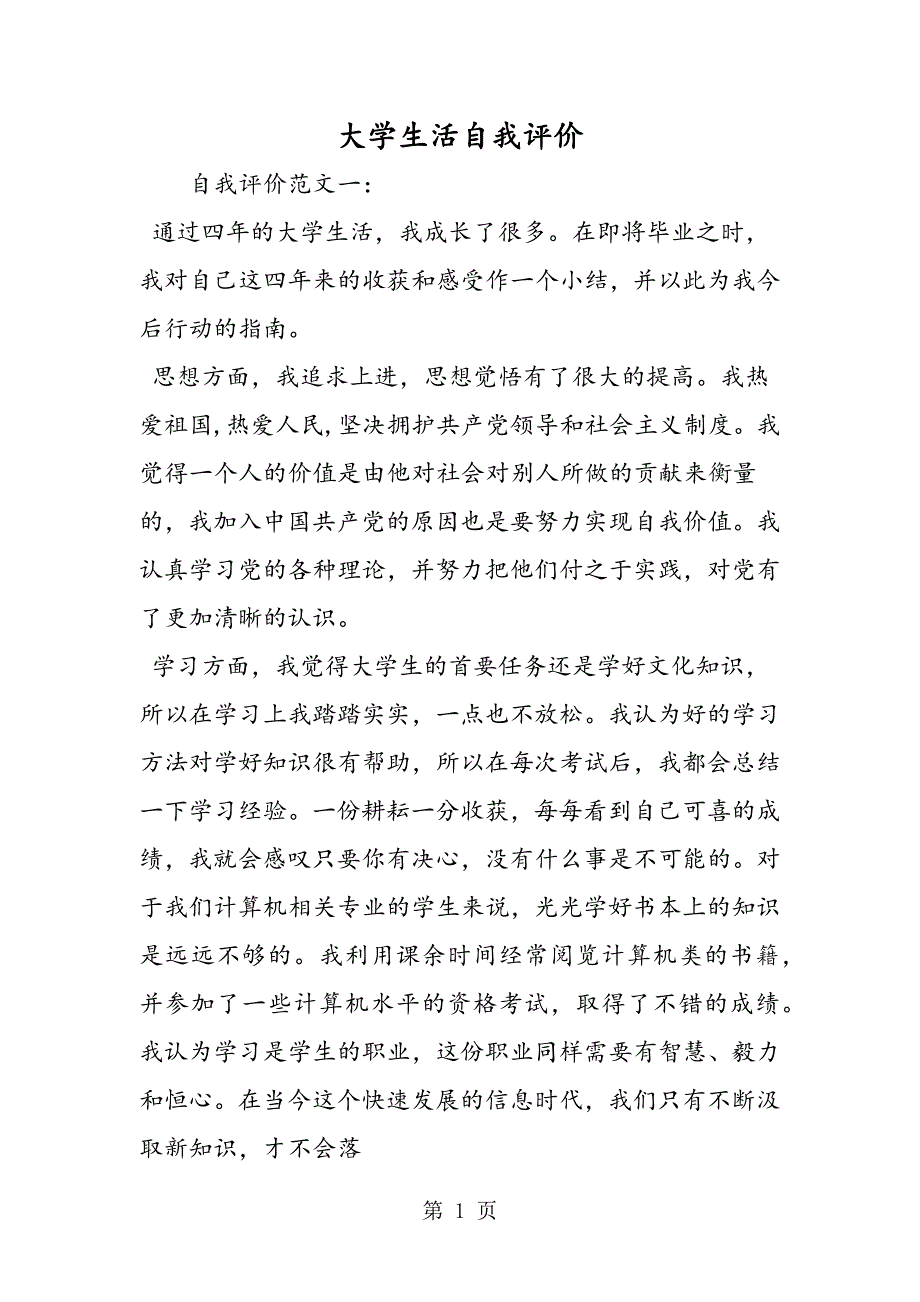 大学生活自我评价
自我评价范文一：
通过四年的大学生活，我成长了很多。在即将毕业之时，
我对自己这四年来的收获和感受作一个小结，并以此为我今
后行动的指南。
思想方面，我追求上进，思想觉悟有了很大的提高。我热
爱祖国,热爱人民,坚决拥护共产党领导和社会主义制度。我
觉得一个人的价值是由他对社会对别人所做的贡献来衡量
的，我加入中国共产党的原因也是要努力实现自我价值。我
认真学习党的各种理论，并努力把他们付之于实践，对党有
了更加清晰的认识。
学习方面，我觉得大学生的首要任务还是学好文化知识，
所以在学习上我踏踏实实，一点也不放松。我认为好的学习
方法对学好知识很有帮助，所以在每次考试后，我都会总结
一下学习经验。一份耕耘一分收获，每每看到自己可喜的成
绩，我就会感叹只要你有决心，没有什么事是不可能的。对
于我们计算机相关专业的学生来说，光光学好书本上的知识
是远远不够的。我利用课余时间经常阅览计算机类的书籍，
并参加了一些计算机水平的资格考试，取得了不错的成绩。
我认为学习是学生的职业，这份职业同样需要有智慧、毅力
和恒心。在当今这个快速发展的信息时代，我们只有不断汲
取新知识，才不会落
第 1 页